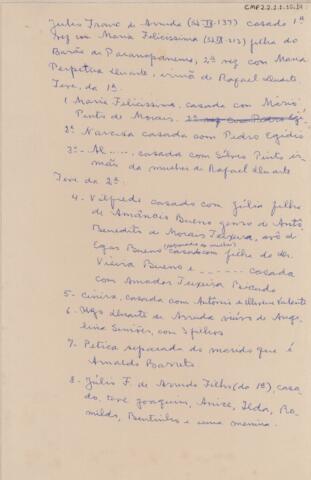 CMF 2.2.1.1.10.14
Júlio Franco de Arruda (SL IV-137) casado 1ª
vez com Maria Felicissima (SL IV-213) filha do
Barão de Paranapanema, 2ª vez com Maria
Perpetua Duarte, irmã de Rafael Duarte.
Teve, da 1ª.
1. Maria Felicissima, casada com Mário
Pinto de Morais. 2ª vez com Pedro Egí
2ª Narcisa casada com Pedro Egídio
3ª - Al....., casada com Silvio Pinto ir
mão da mulher de Rafael Duarte
Teve da 2ª
4 - Vilfredo casado com Júlia filha
de Amâncio Bueno genro de Antº
Benedito de Morais Teixeira, avô de
Egas Bueno casado com filha do dr.
Vieira Bueno e - - - - - - casada
com Amador Teixeira Penado
5 - casada com António Valente
6 - Ugo Duarte de Arruda viúvo de Ange
lina Simões, com 3 filhos
7 - Petica separada do marido que é
Arnaldo Barreto
8 - Júlio F. de Arruda Filho (da 1ª), casa
do, teve Joaquim, Anize, Ilda, Ro
mildo, Bentinho e uma menina.